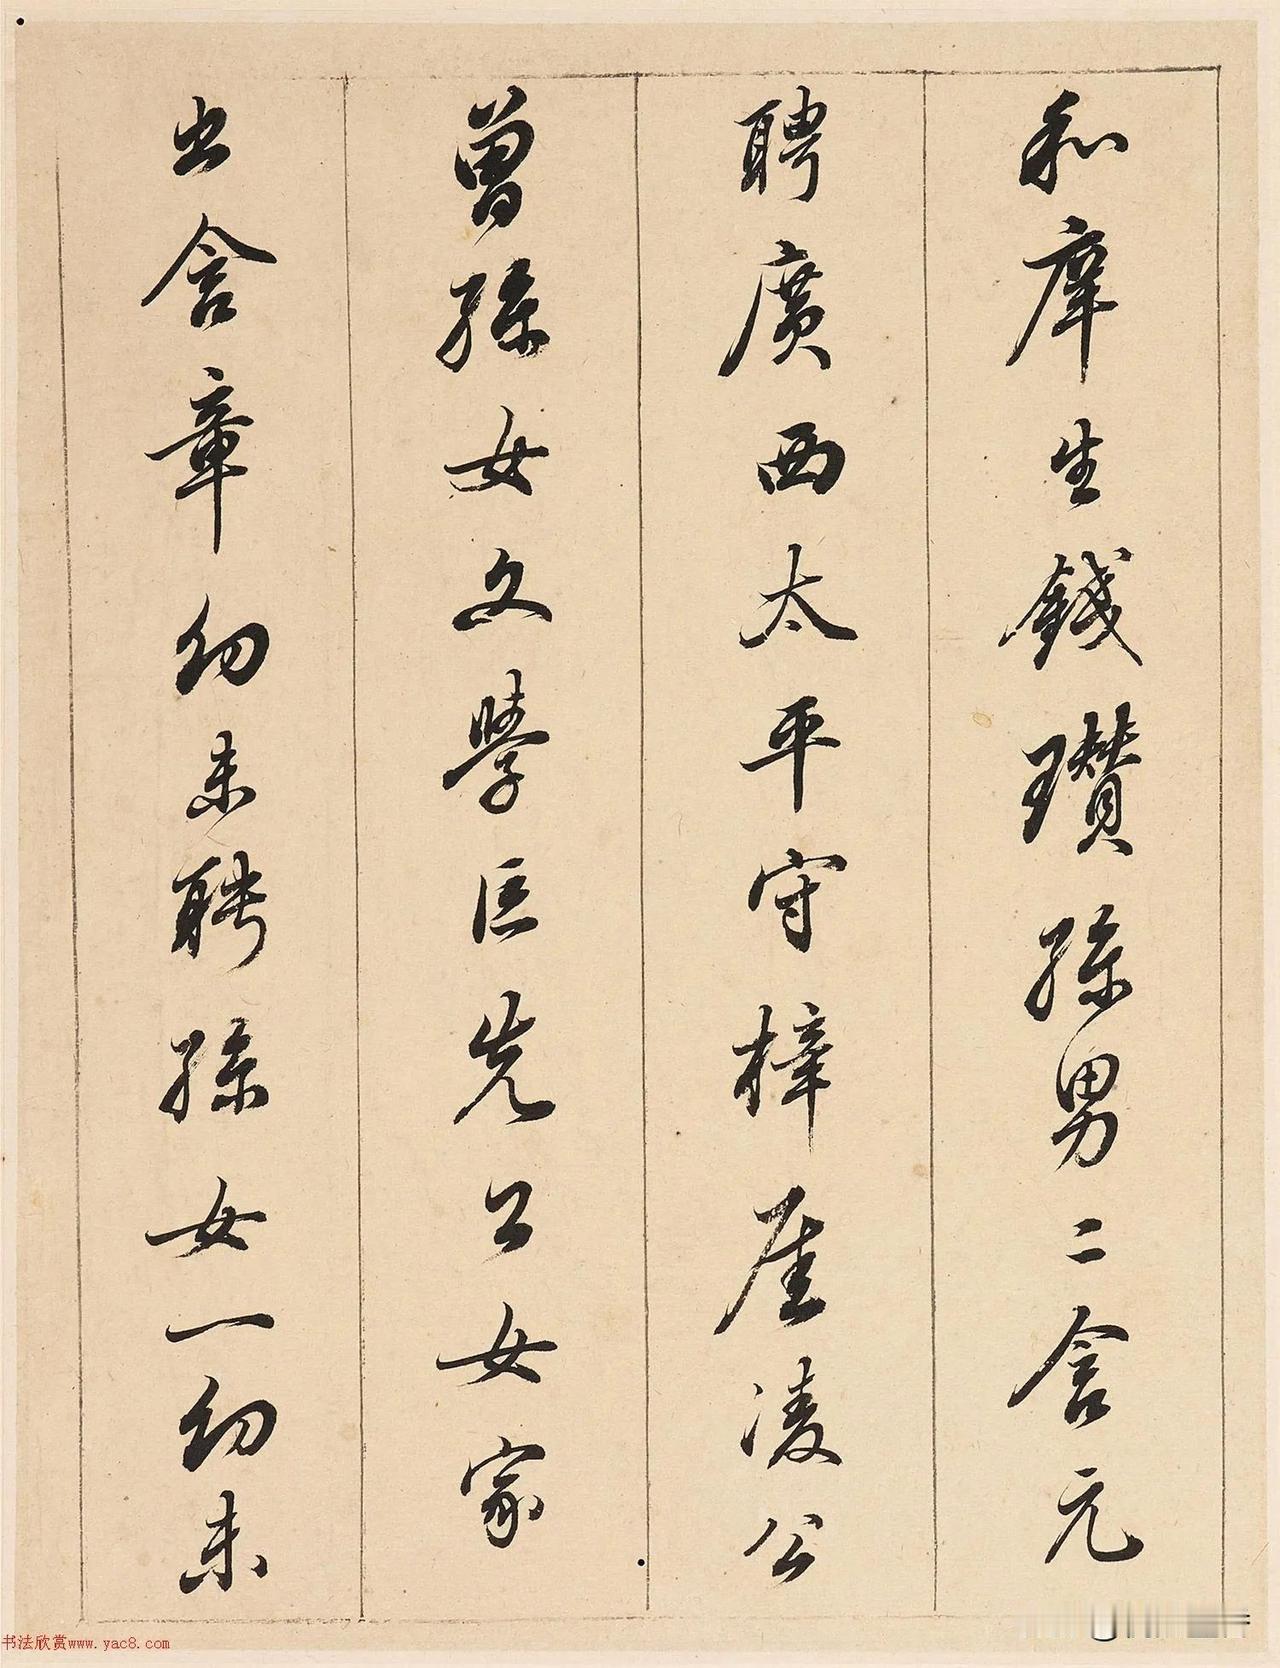 和庠生錢瓚孫男二含元
聘廣西太平守梓厓凌公
曾孫女文學先公女家
出含章幼未聘孫女一幼未
书法欣赏www.yac8.com